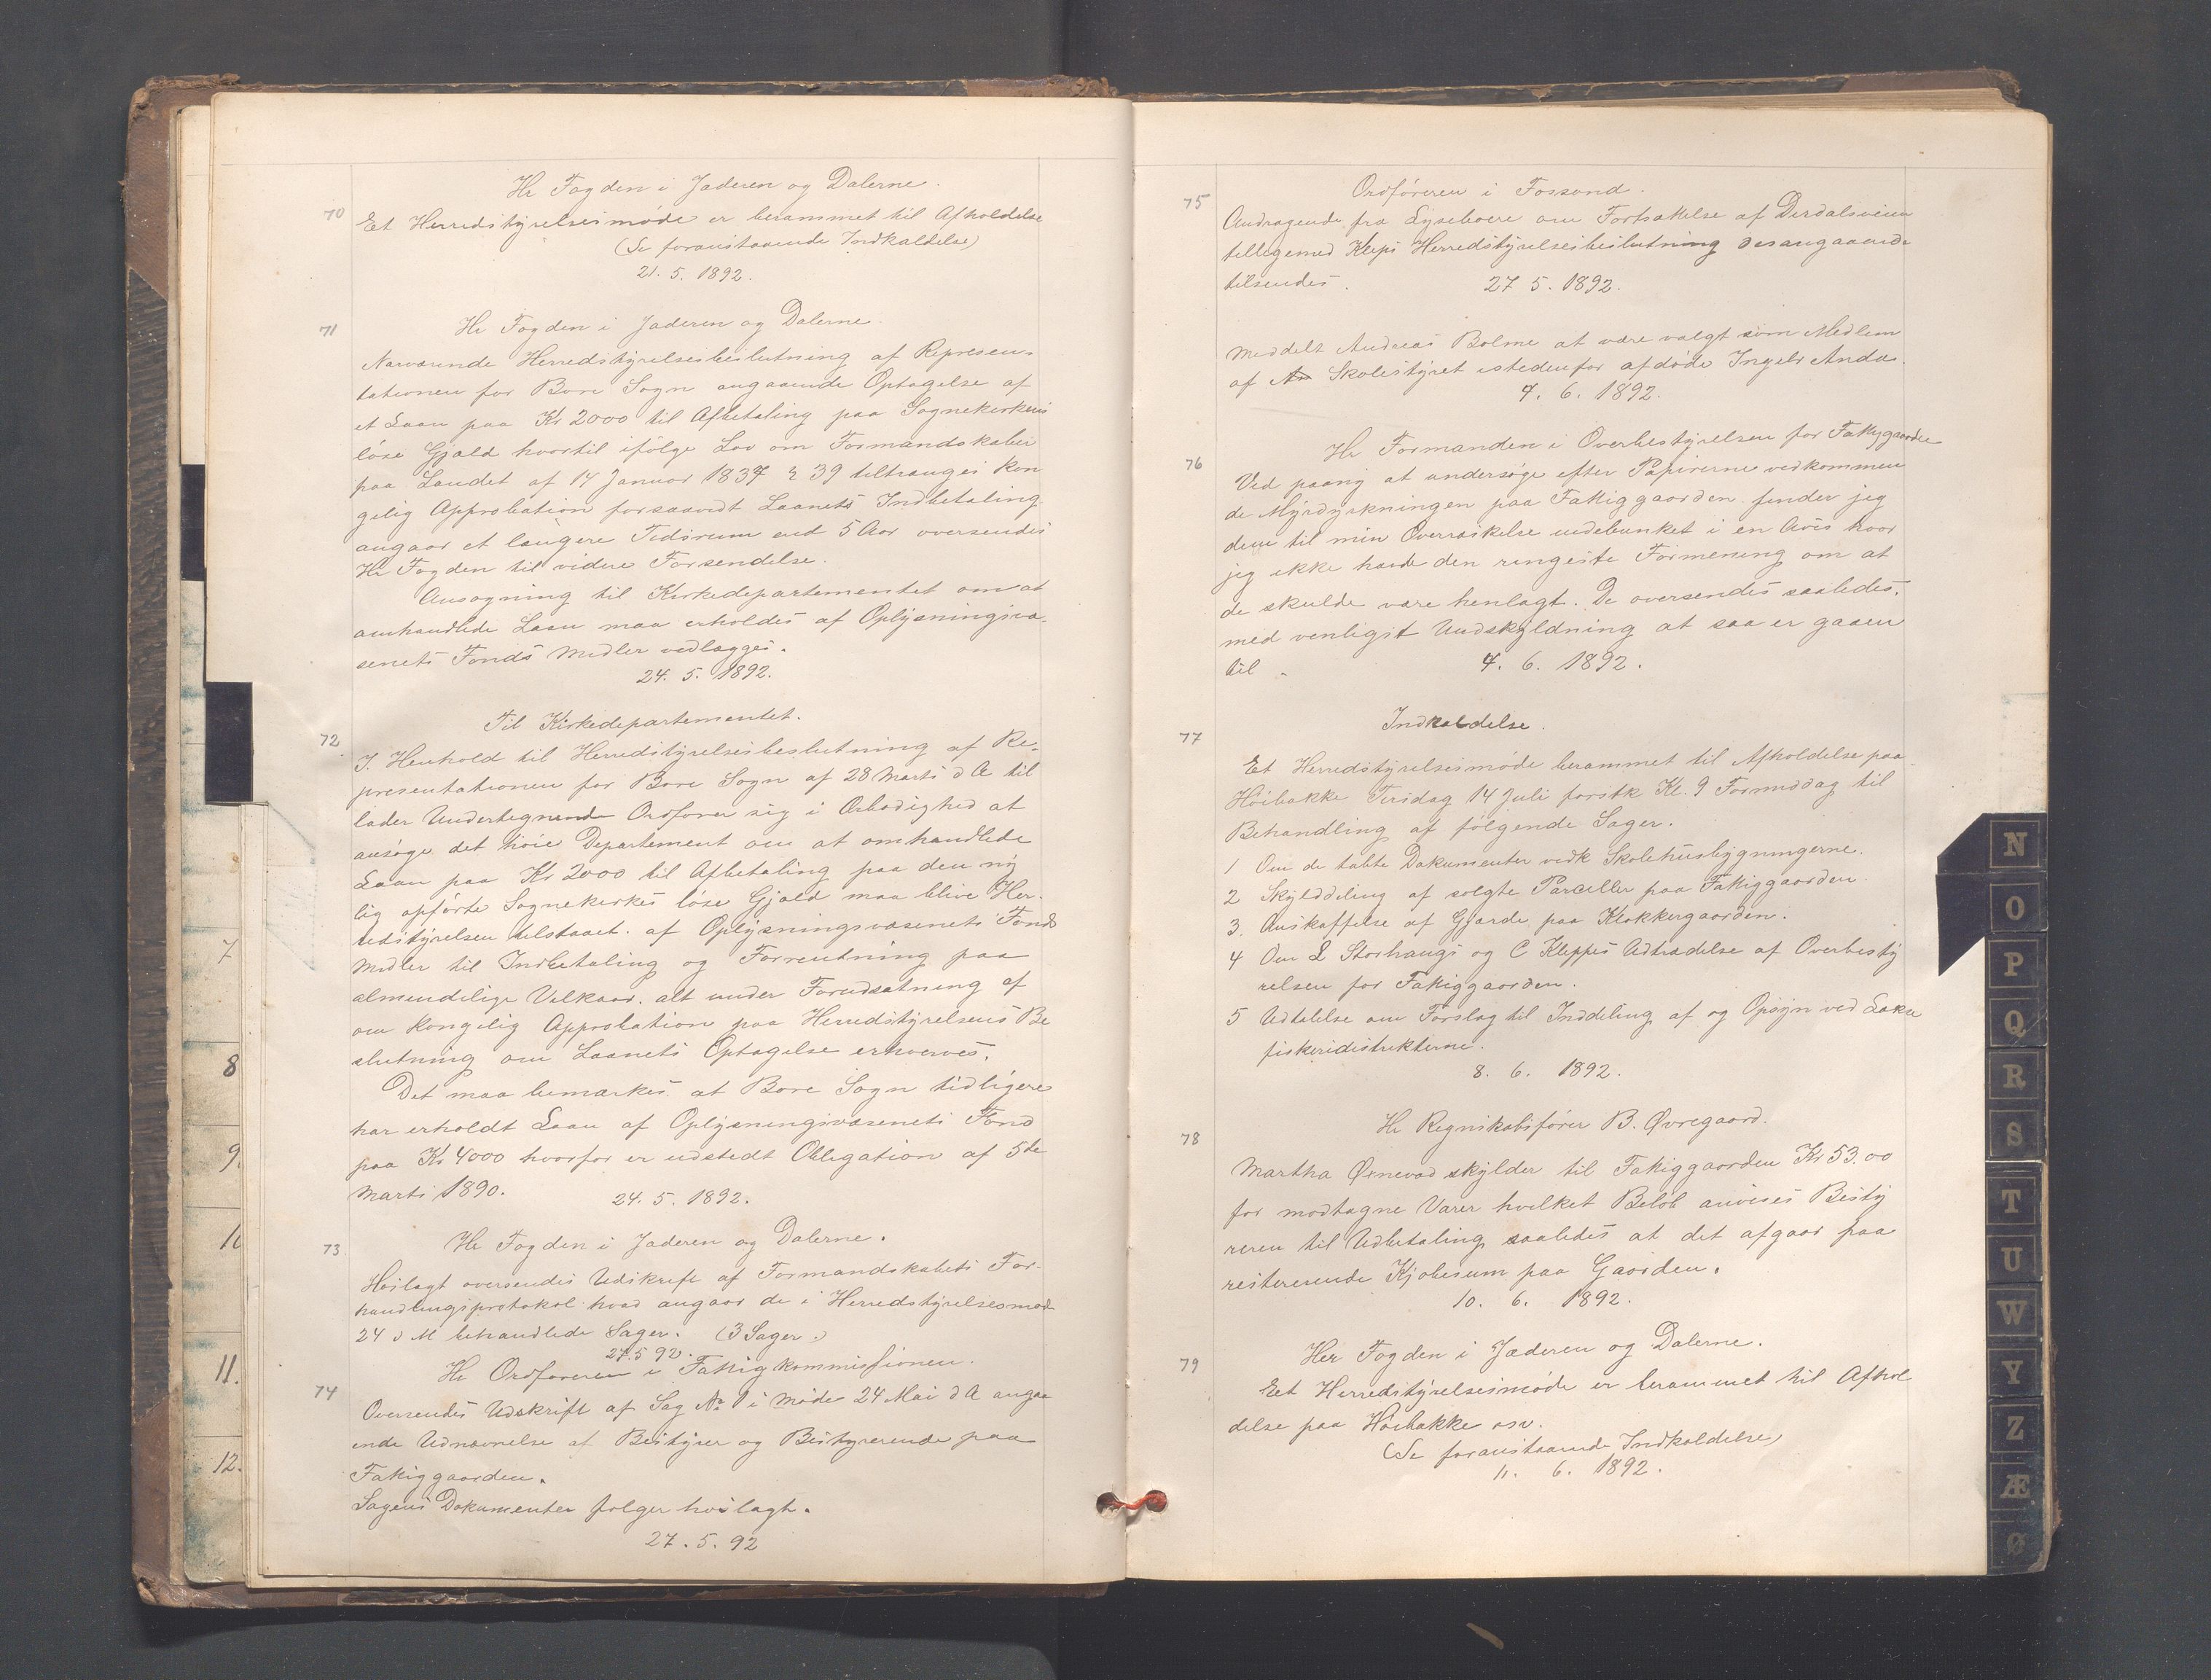 Hr Fogden i Jæderen og Dalerne.
70 Et Herredstyrelsesmøde er berammet til Afholdelse
(Se foranstaaende Indkaldelse)
21. 5. 1892.
71 Hr Fogden i Jæderen og Dalerne.
Nærværende Herredstyrelsesbeslutning af Represen-
tationen for Bore Sogn angaaende Optagelse af
et Laan paa Kr 2000 til Afbetaling paa Sognekirkens
løse Gjæld hvortil ifølge Lov om Formandskaber
paa Landet af 14 Januar 1837 § 39 tiltrænges kon
gelig Approbation forsaavidt Laanets Indbetaling
angaar et længere Tidsrum end 5 Aar oversendes
Hr Fogden til videre Forsendelse.
Ansøgning til Kirkedepartementet om at
omhandlede Laan maa erholdes af Oplysningsvæ-
senets Fonds Midler vedlægges.
24. 5. 1892.
Til Kirkedepartementet.
72 I. Henhold til Herredstyrelsesbeslutning af Re-
presentationen for Bore Sogn af 28 Marts d A til
lader Undertegnende Ordfører sig i Ærbødighed at
ansøge det høie Departement om at omhandlede
Laan paa Kr 2000 til Afbetaling paa den ny
lig opførte Sognekirkes løse Gjæld maa blive Her-
redstyrelsen tilstaaet. af Oplysningsvæsenets Fonds
Midler til Indbetaling og Forrentning paa
almindelige Vilkaar. alt under Forudsætning af
om kongelig Approbation paa Herredstyrelsens Be
slutning om Laanets Optagelse erhverves.
Det maa bemærkes at Bore Sogn tidligere
har erholdt Laan af Oplysningsvæsenets Fond
paa Kr 4000 hvorfor er udstedt Obligation af 5te
Marts 1890.
24. 5. 1892.
73 Hr Fogden i Jæderen og Dalerne.
Hoslagt oversendes Udskrift af Formandskabets For-
handlingsprotokol hvad angaar de i Herredstyrelsesmøde
24 d M behandlede Sager. (3 Sager.)
27.5 92.
Hr Ordføreren i Fattigkommissionen.
74 Oversendes Udskrift af Sag No 1 i Møde 24 Mai d A angaa
ende Udnævnelse af Bestyrer og Bestyrerende paa
Fattiggaarden.
Sagens Dokumenter følger hoslagt.
27. 5. 92
Ordføreren i Fossand.
75 Andragende fra Lyseboere om Fortsættelse af Dirdalsveien
tilligemed Kleps Herredstyrelsesbeslutning desangaaende
tilsendes.
27 5. 1892.
Meddelt Andreas Bolme at være valgt som Medlem
af Skolestyret istedenfor afdøde Ingebr Anda.
7. 6. 1892.
Hr Formanden i Overbestyrelsen for Fattiggaarden
76 Ved paany at undersøge efter Papirerne vedkommen
de Myrdyrkningen paa Fattiggaarden finder jeg
dem til min Overraskelse indebunket i en Avis hvor
jeg ikke havde den ringeste Formening om at
de skulde være henlagt. De oversendes saaledes.
med venligst Undskyldning at saa er gaaen
til.
7. 6. 1892.
Indkaldelse.
77 Et Herredstyrelsesmøde berammet til Afholdelse paa
Høibakke Tirsdag 14 Juli førstk Kl. 9 Formiddag til
Behandling af følgende Sager.
1 Om de tabte Dokumenter vedk Skolehusbygningerne.
2 Skylddeling af solgte Parceller paa Fattiggaarden.
3. Anskaffelse af Gjærde paa Klokkergaarden.
4 Om L Storhaugs og C Kleppes Udtrædelse af Overbesty
relsen for Fattiggaarden.
5 Udtalelse om Forslag til Inddeling af og Opsyn ved Lakse
fiskeridistrikterne.
8. 6. 1892.
Hr Regnskabsfører B. Øvregaard.
78 Martha Ørnevad skylder til Fattiggaarden Kr 53.00
for modtagne Varer hvilket Beløb anvises Besty
reren til Udbetaling saaledes at det afgaar paa
resterende Kjøbesum paa Gaarden.
10. 6. 1892.
Her Fogden i Jæderen og Dalerne.
79 Eet Herredstyrelsesmøde er berammet til Afhol
delse paa Høibakke osv.
(Se foranstaaende Indkaldelse)
11. 6. 1892.
7
8
9
10
11.
12.
N
O
P
Q
R
S
T
U
W
Y
Z
Æ
Ø